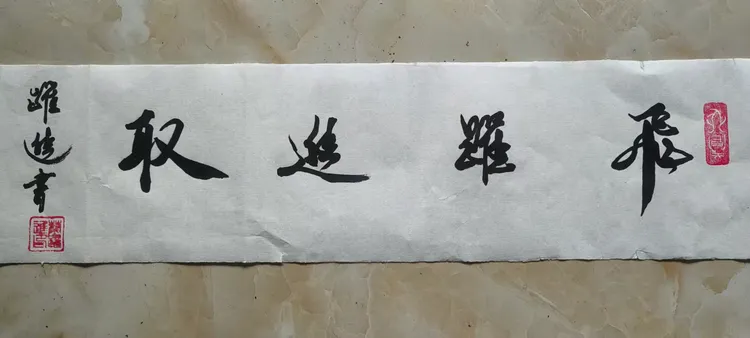 飛躍進取
躍進書